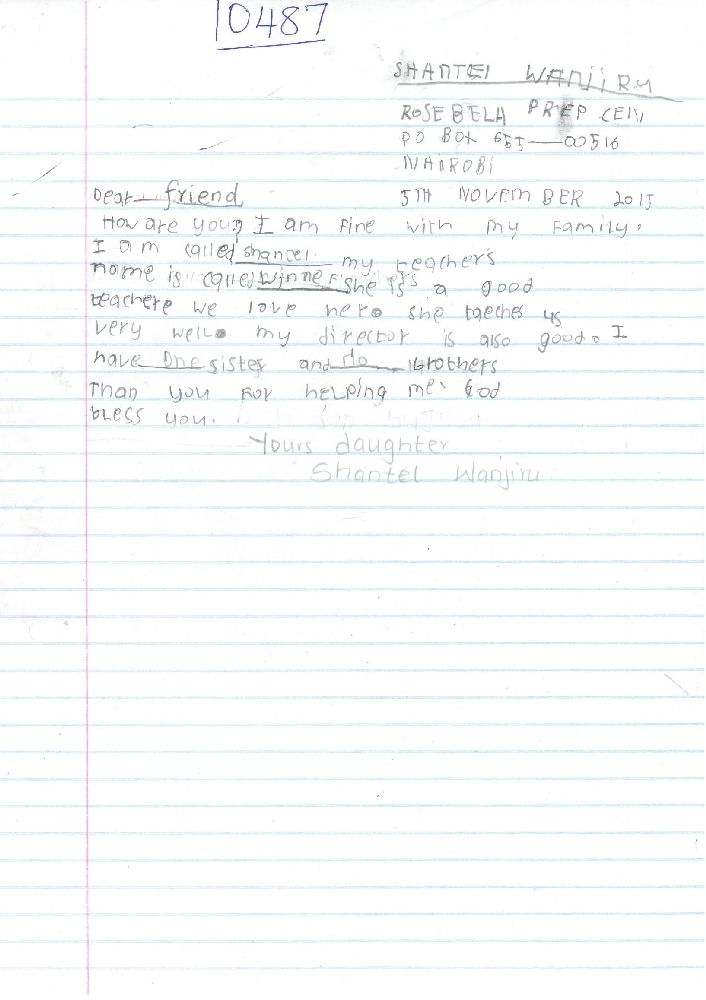 10487
SHANTEl WANjiRU
ROSEBELA PREP CEN
PO BOX 655—00516
NAiROBi
Dear friend, 5TH NOVEMBER 2015
How are you? I am Fine with my Family.
I am called shantel my teacher's
name is called Winne she is a good
teachere we love hero she taeches us
very wello my director is also good. I
have One sister and No brothers
Than you For helping me. God
bless you.
Yours daughter
Shantel Wanjiru